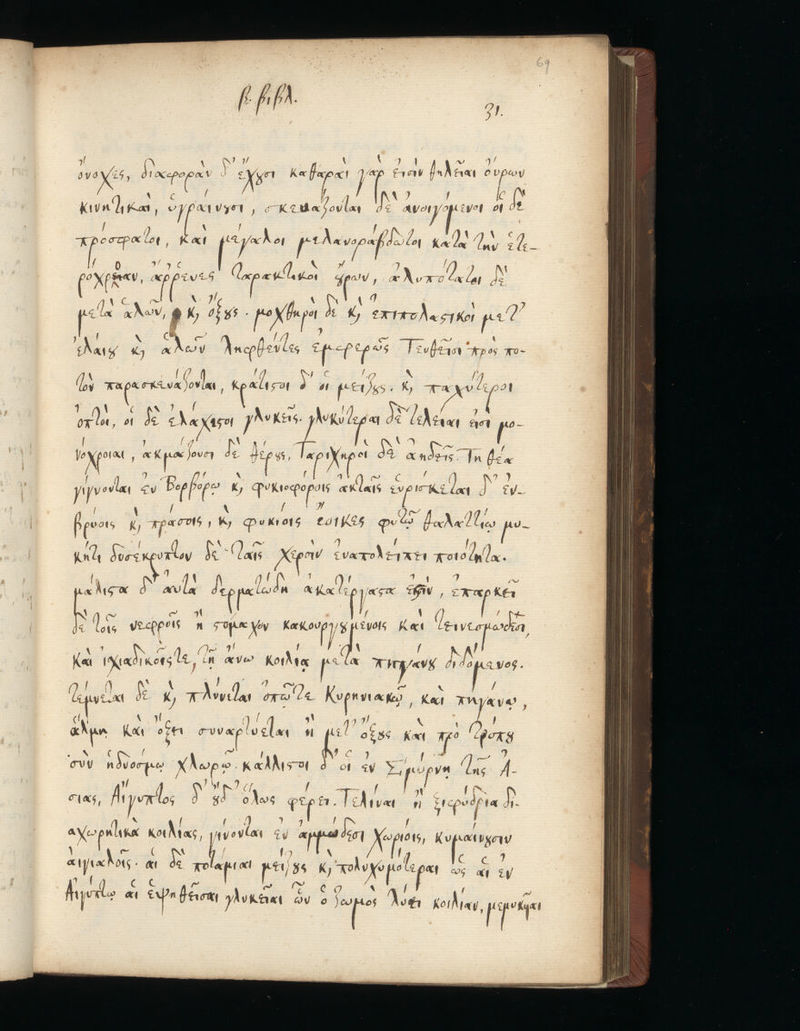 69
β. βιβλ.
31.
ὄνυχες, διαφορὰν δ' ἔχουσι καθαραὶ γὰρ εἰσὶν θηλεῖαι οὔρων
κινητικαὶ, ὑγραίνουσι, σκευάζονται δὲ ἀνοιγόμενοι οἱ δὲ
πρόσφατοι, καὶ μέγαλοι μελανοράβδωτοι κατὰ τὴν ἑτε-
ρόχροιαν, ἄρρενες ταρακτικοὶ οὔρων, ἀλυπότατοι δὲ
μετὰ ἁλῶν, κὶ ὄξους. μοχθηροὶ δὲ κὶ ἐπιπολαστικοὶ μετ'
ἐλαίου κὶ ἁλῶν ληφθέντες ἐμφερῶς Τευθεῖσι πρὸς πο-
τὸν παρασκευάζονται, κράτιστοι δ' οἱ μείζους. κὶ παχύτεροι
ὀπτοὶ, οἱ δὲ ἐλάχιστοι γλυκεῖς. γλυκύτεραι δὲ τέλειαι εἰσὶ μο-
νόχροιαι, ἀκμάζουσι δὲ θέρους, Ταριχηροὶ δὲ ἀηδεῖς. Τηθέα
γίγνονται ἐν Βορβόρῳ κὶ φυκιοφόροις ἀκταῖς εὑρίσκεται δ' ἐν-
βρύοις κὶ πράσοις, κὶ φυκίοις ἔοικες φυτῷ θαλαττίῳ μυ-
κήτι δυσέκρυπτον δὲ ταῖς χερσὶν ἐναπολείπει ποιότητα.
μάλιστα δ' αὐτὰ δερματώδη ἀκατέργαστα ἐστὶν, ἐπαρκεῖ
δὲ τοῖς νεφροῖς ἢ στόμαχον κακουργουμένοις καὶ τεινεσμώδεσι,
καὶ ἰχιαδικοῖς τε, τῇ ἄνω κοιλίᾳ μετὰ πηγάνου διδόμενος.
τέμνεται δὲ κὶ πλύνεται ὀπῷτε Κυρηνιακῷ, καὶ πηγάνῳ,
ἅλμῃ καὶ ὄξει συναρτύεται ἢ μετ' ὄξους καὶ πρὸ τρόπου
σὺν ἡδυόσμῳ χλωρῷ. κάλλιστοι δ' οἱ ἐν Σμύρνῃ τῆς Ἀ-
σίας, Αἴγυπτος δ' οὐδ' ὅλως φέρει. Τελίναι ἢ ξιφύδρια δι-
αχωρητικὰ κοιλίας, γίνονται ἐν ἀμμώδεσι χωρίοις, κυμαίνουσιν
αἰγιαλοῖς. αἱ δὲ ποτάμιαι μείζους κὶ πολυχυμότεραι ὡς αἱ ἐν
Αἰγύπτῳ αἱ ἑψηθεῖσαι γλυκεῖαι ὧν ὁ ζωμὸς λύει κοιλίαν,